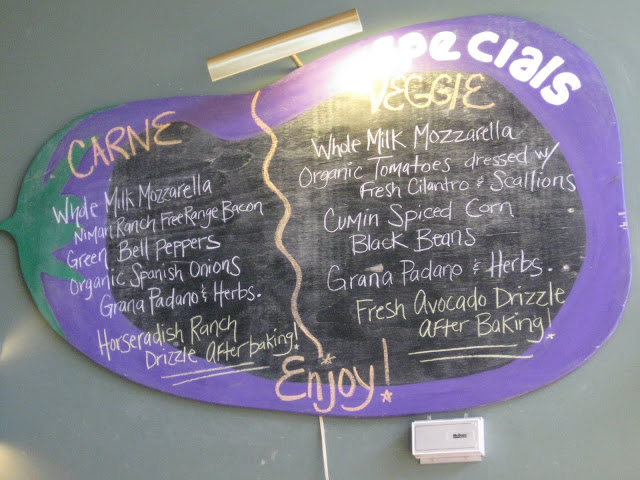 specials
CARNE
Whole Milk Mozzarella
Niman Ranch Free Range Bacon
Green Bell Peppers
Organic Spanish Onions
Grana Padano & Herbs.
Horseradish Ranch
Drizzle After baking!
VEGGIE
Whole Milk Mozzarella
Organic Tomatoes dressed w/
Fresh Cilantro & Scallions
Cumin Spiced Corn
Black Beans
Grana Padano & Herbs.
Fresh Avocado Drizzle
After Baking!
Enjoy!